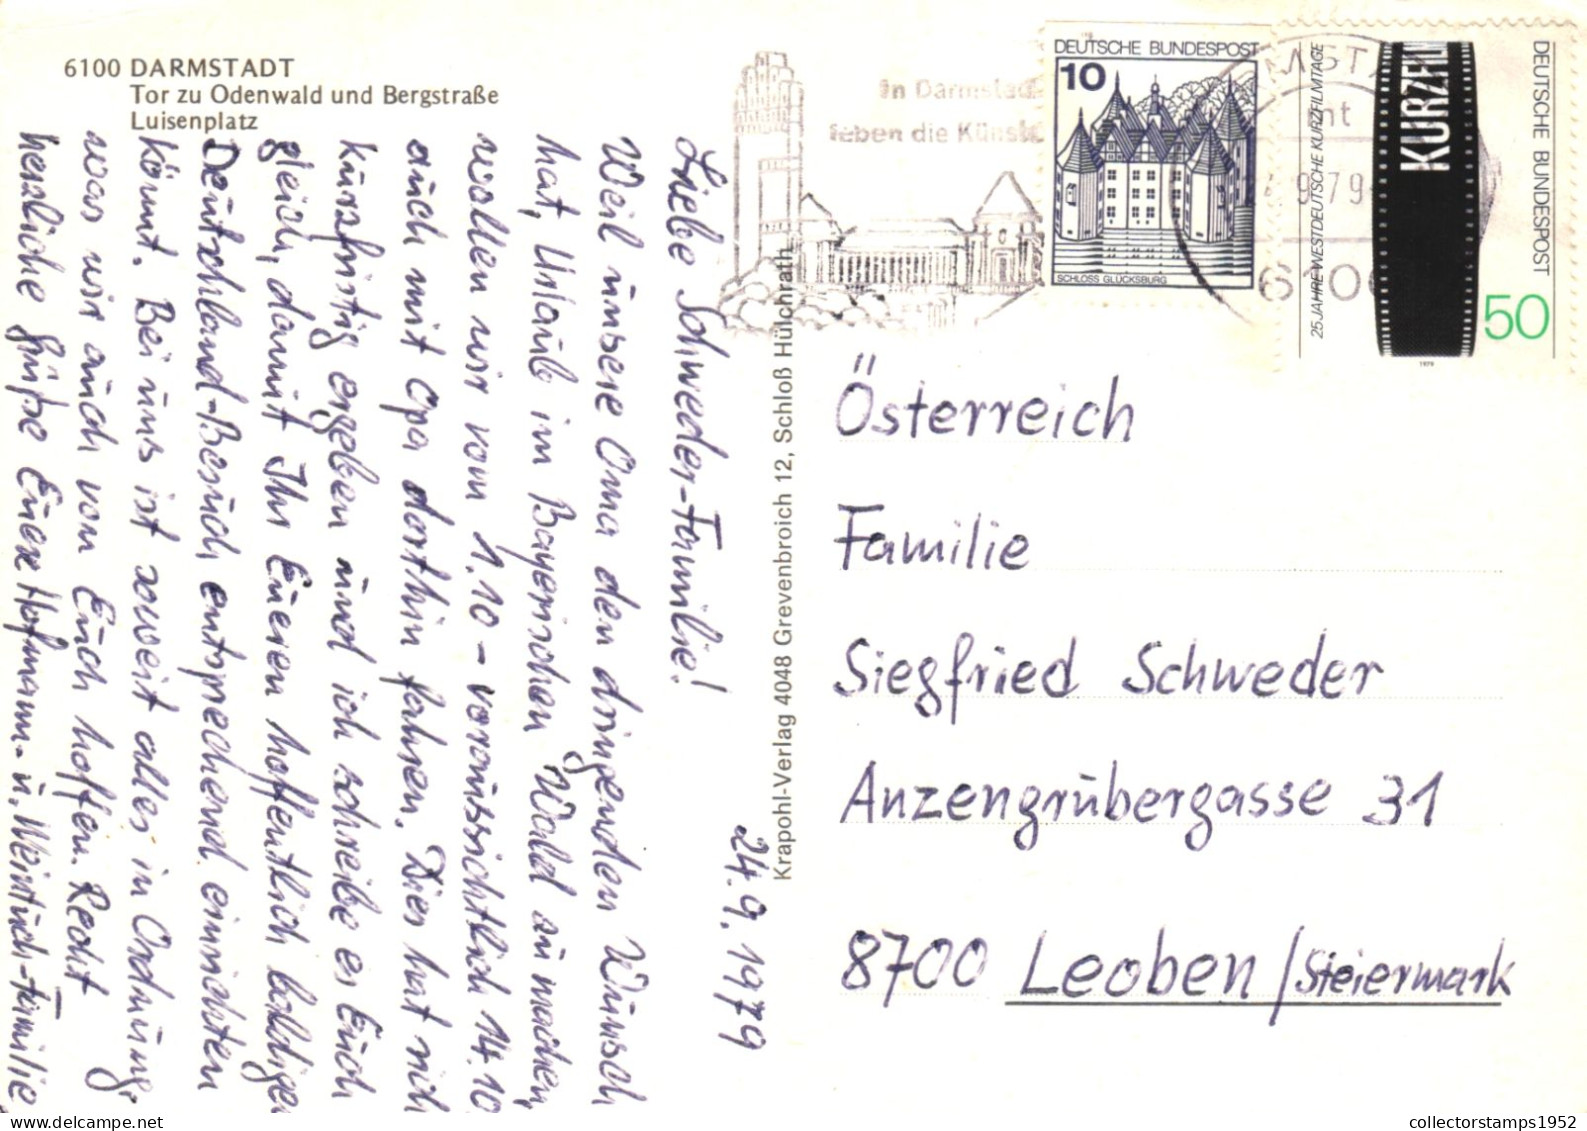 6100 DARMSTADT
Tor zu Odenwald und Bergstraße
Luisenplatz
In Darmstad
leben die Künst
DEUTSCHE BUNDESPOST
10
SCHLOSS GLÜCKSBURG
MSTA
nt
9.79
6100
25 JAHRE WESTDEUTSCHE KURZFILMTAGE
KURZFILM
DEUTSCHE BUNDESPOST
50
1979
Krapohl-Verlag 4048 Grevenbroich 12, Schloß Hülchrath
24.9.1979
Liebe Schweder-Familie!
Weil unsere Oma den dringenden Wunsch
hat, Urlaub im Bayerischen Wald zu machen,
wollen wir vom 1.10 - voraussichtlich 14.10
auch mit Opa dorthin fahren. Dies hat sich
kurzfristig ergeben und ich schreibe es Euch
gleich, damit Ihr Eueren hoffentlich baldigen
Deutschland-Besuch entsprechend einrichten
könnt. Bei uns ist soweit alles in Ordnung,
was wir auch von Euch hoffen. Recht
herzliche Grüße Euere Hofmann- u. Weintuch-Familie
Österreich
Familie
Siegfried Schweder
Anzengrübergasse 31
8700 Leoben / Steiermark
collectorstamps1952